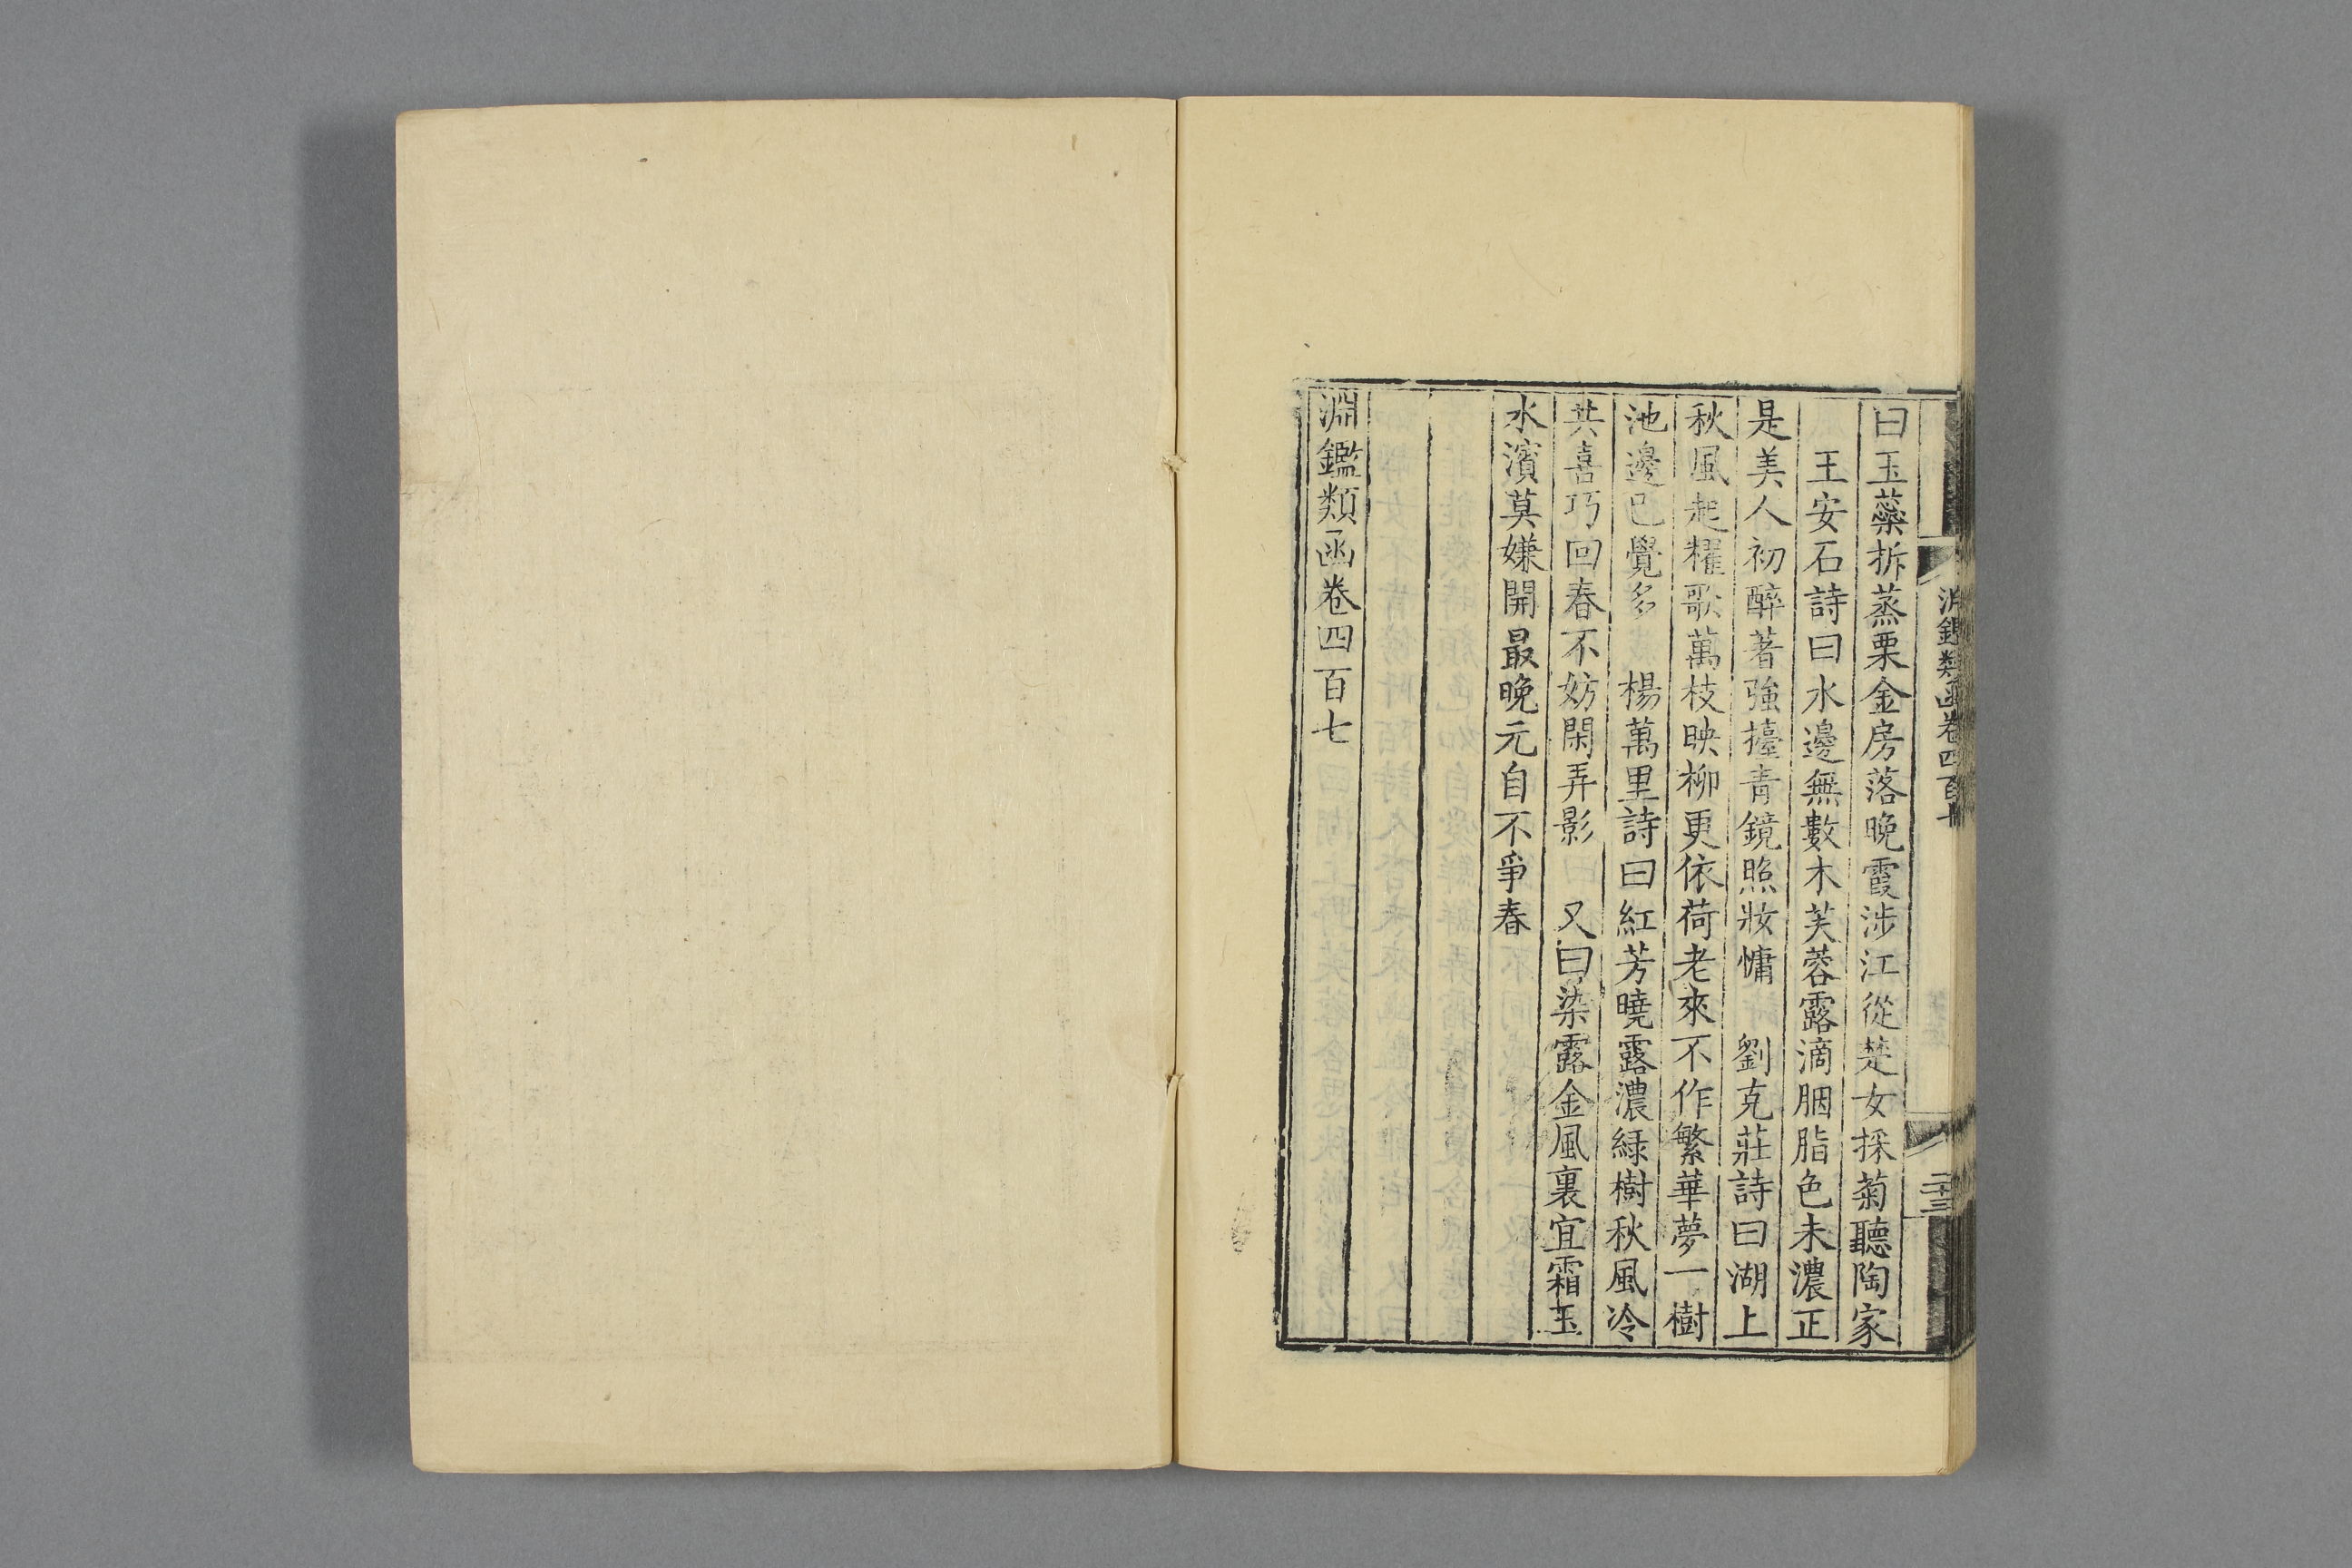 淵鑑類函卷四百七
二十三
曰玉蘂拆蒸栗金房落晚霞涉江從楚女採菊聽陶家
王安石詩曰水邊無數木芙蓉露滴胭脂色未濃正
是美人初醉著強擡青鏡照妝慵　劉克莊詩曰湖上
秋風起櫂歌萬枝映柳更依荷老來不作繁華夢一樹
池邊已覺多　楊萬里詩曰紅芳曉露濃綠樹秋風冷
共喜巧回春不妨閑弄影　又曰染露金風裏宜霜玉
水濱莫嫌開最晚元自不爭春
淵鑑類函卷四百七